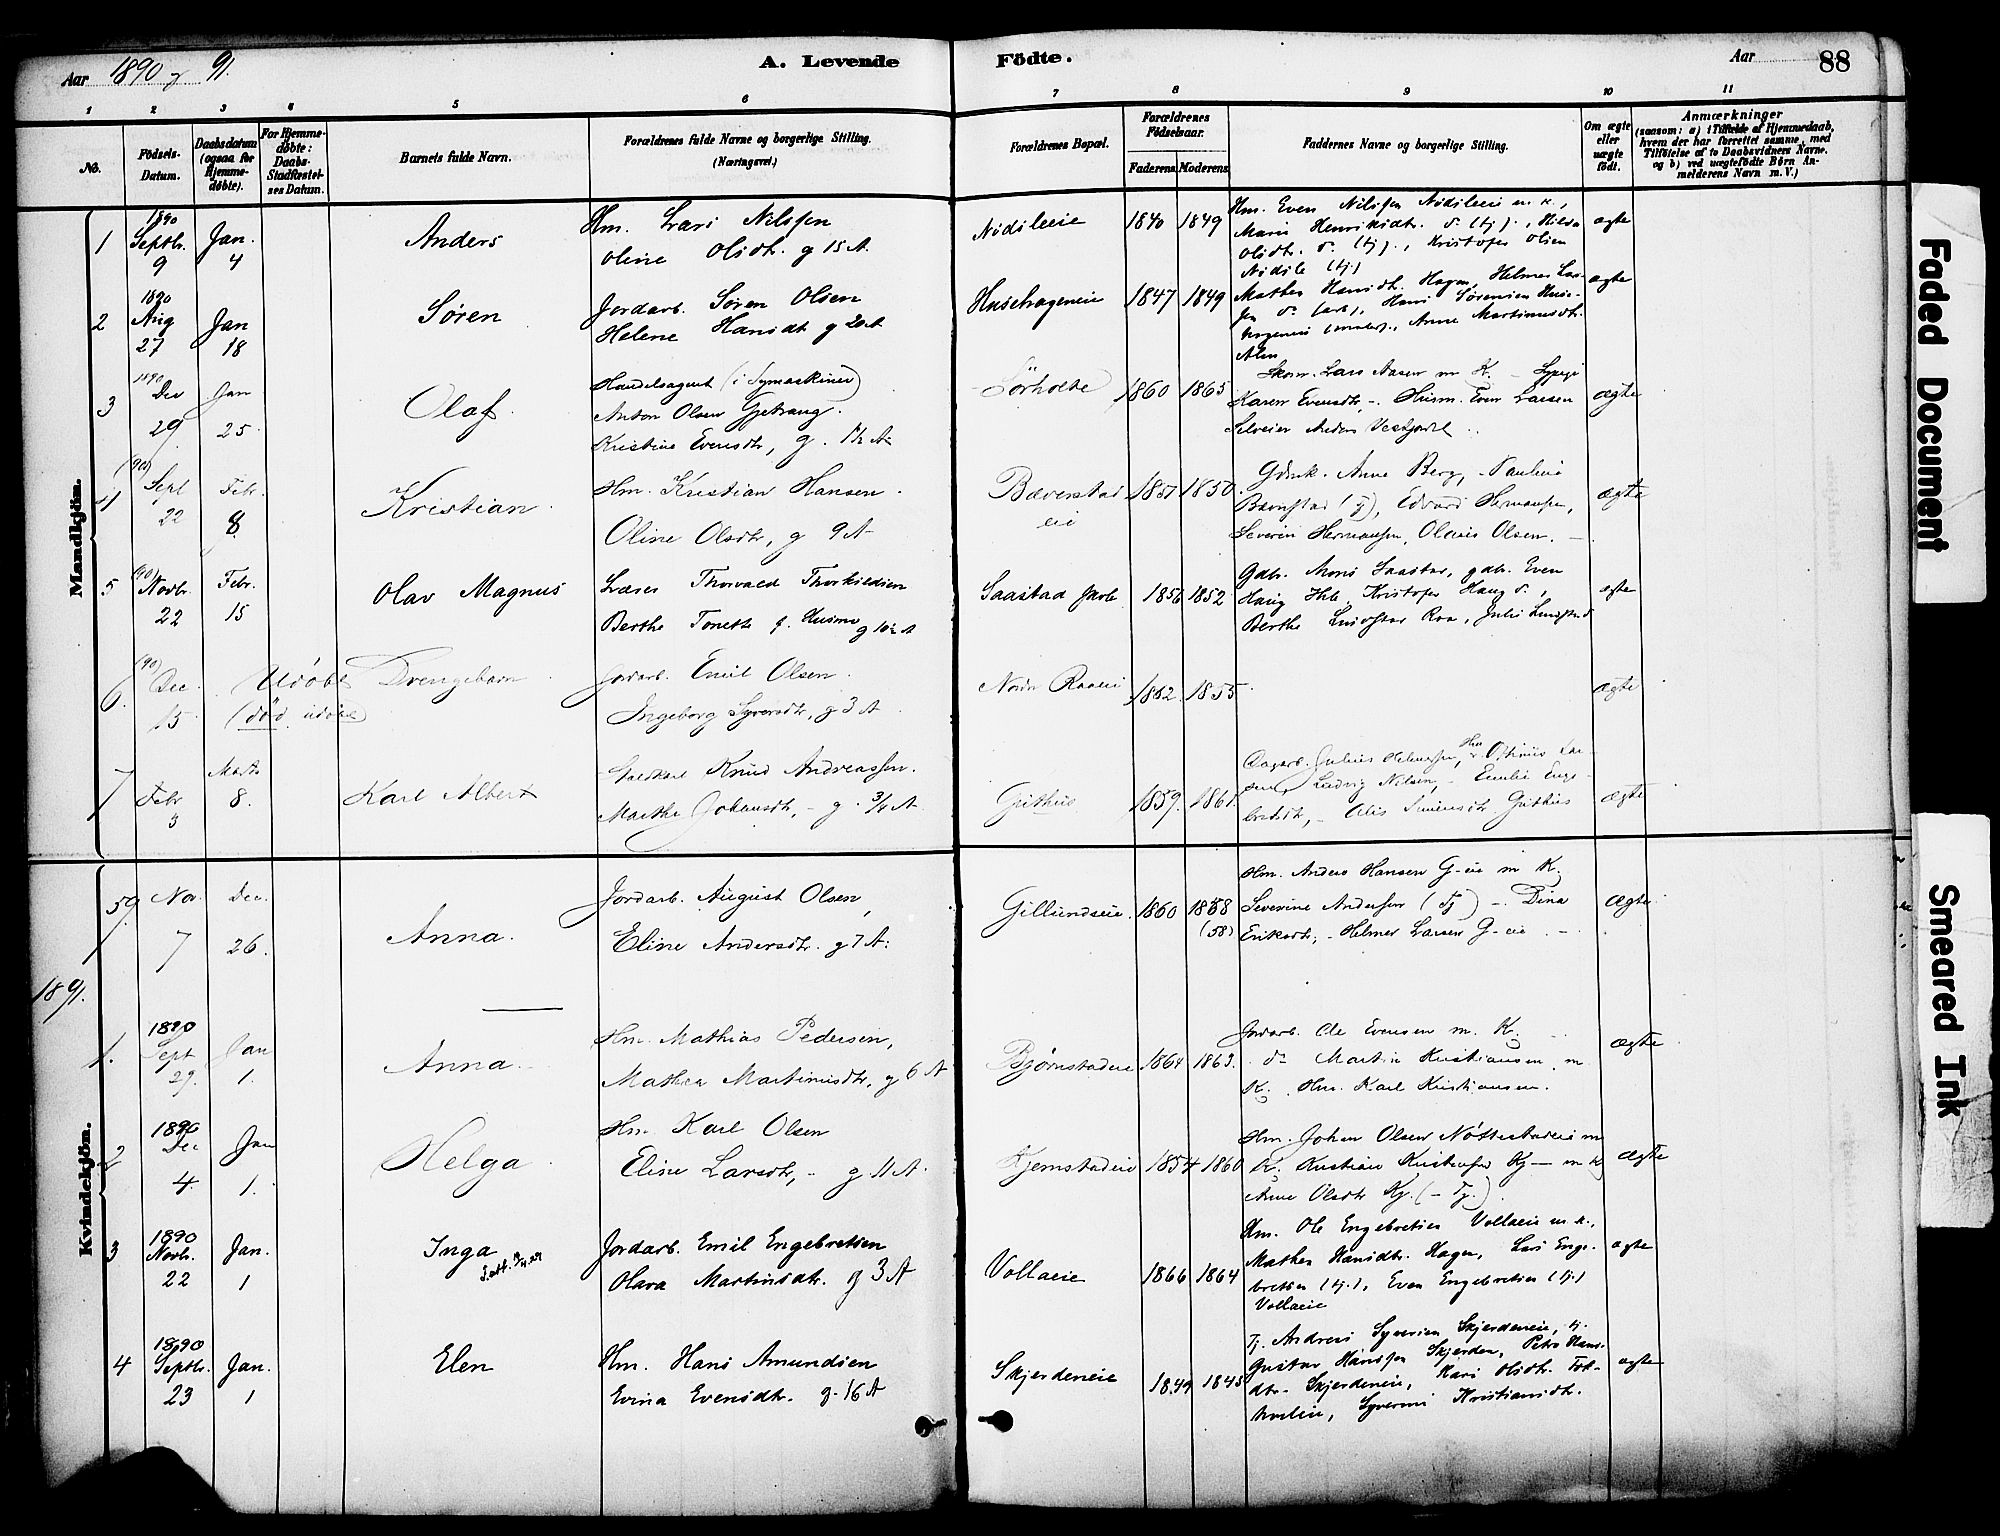 Aar 1890 og 91.
A. Levende
Födte.
Aar
88
1 2 3 4 5 6 7 8 9 10 11
No.
Födsels-Datum.
Daabsdatum (ogsaa for Hjemme-døbte).
For Hjemme-døbte: Daabs-Stadfæstel-ses Datum.
Barnets fulde Navn.
Forældrenes fulde Navne og borgerlige Stilling. (Næringsvei.)
Forældrenes Bopæl.
Forældrenes Födselsaar.
Faderens Moderens
Faddernes Navne og borgerlige Stilling.
Om ægte eller uægte født.
Anmærkninger
(saasom: a) i Tilfælde af Hjemmedaab,
hvem der har forrettet samme, med
Tilföielse af to Daabsvidners Navne.
og b) ved uægtefödte Börn An-
melderens Navn m. V.)
Mandkjön.
1 1890 Septbr. 9 Jan. 4 Anders
Hm. Lars Nilssen
Oline Olsdtr. g 15 A
Nidileeie 1840 1849
Hm. Even Nilssen Nidileeie m. k.,
Marie Henriksdtr. d. (tj)., Hilda
Olsdtr. d. (tj)., Kristofer Olsen
Nidile (tj)
ægte
2 1890 Aug 27 Jan 18 Søren
Jordarb. Søren Olsen
Helene Hansdtr g 20 A
Husehageneie 1847 1849
Mathea Hansdtr. Hagen, Helmer Lar-
sen d. (arb), Hans Sørensen Huse-
hageneie, Anne Martinusdtr.
ægte
3 1890 Dec 29 Jan 25 Olaf.
Handelsagent (i Symaskiner)
Anton Olsen Gjetrang.
Kristine Evensdtr, g. 1½ A
Sörholte 1860 1865
Skom. Lars Aasen m K. - Sypige
Karen Evensdtr, -. Husm. Even Larsen
Anders Vestjordet
ægte
4 (90) Sept 22 Febr. 8. Kristian
Hm. Kristian Hansen.
Oline Olsdtr, g 9 A
Bæverstad eie 1857 1850.
Gdmk. Anne Berg, Pauline
Bæverstad (Tj), Edvard Hermansen,
Severin Hermansen, Olaus Olsen. -
ægte
5 (90) Novbr. 22 Febr. 15 Olav Magnus
Lærer Thorvald Thorkildsen
Berthe Tonette f. Husmo g 10½ A
Saastad Skole 1856 1852
Gdbr. Mons Saastad, gdbr. Even
Haug Hole, Kristofer Haug d.,
Berthe Raa, Julie
ægte
6 (90) Dec. 15. Udöbt (död udöbt) Drengebarn
Jordarb. Emil Olsen.
Ingeborg Syversdtr, g 3 A.
Nordr. Raaeie 1862. 1855
ægte
7 Febr 3 Marts 8. Karl Albert
Gaardkarl Knud Andreassen.
Marthe Johansdtr, - g. ¾ A.
Guthus 1859. 1861.
Dagarb. Julius Helmersen, Hm Othinius Lar-
sen, Ludvig Nilsen, - Emilie Enge-
bretsdtr, - Olis Simensdtr Guthus
ægte
Kvindekjön.
59. Nov. 7 Dec. 26. Anna.
Jordarb. August Olsen,
Eline Andersdtr. g 7 A.
Gillundseie. 1860 1858 (58)
Hm. Anders Hansen G-eie m K.
Severine Andersen (Tj) -. Dina
Eriksdtr, - Helmer Larsen G-eie. -
Ægte
1891.
1. 1890 Sept 29. Jan 1. Anna.
Hm. Mathias Pedersen,
Mathea Martinusdtr, g 6 A
Bjørnstadeie 1864 1863.
Jordarb. Ole Evensen m. K.
do Martin Kristiansen m
K. Hm. Karl Kristiansen.
ægte
2 1890 Dec 4. Jan 1. Helga.
Hm. Karl Olsen
Eline Larsdtr, - g. 11 A.
Kjemstadeie 1854 1860
Hm. Johan Olsen Nötterstadeie m
K. Kristian Kristensen Kj- m K
Anne Olsdtr Kj. (- Tj.).
Ægte
3 1890 Novbr. 22 Jan. 1 Inga
Jordarb. Emil Engebretsen
Olava Martinsdtr. g 3 A
Vollaeie 1866 1864
Hm. Ole Engebretsen Vollaeie m. k.,
Mathea Hansdtr. Hagen, Lars Enge-
bretsen (tj.), Even Engebretsen (tj.)
Vollaeie
ægte
4 1890 Septbr. 23 Jan. 1 Elen
Hm. Hans Amundsen
Evina Evensdtr. g. 16 A
Skjerdeneie 1849 1845
Tj. Andreas Syversen Skjerdeneie, tj.
Gustav Hansen Skjerden, Petra Hans-
dtr. Skjerdeneie, Kari Olsdtr.
Syverine Kristiansdtr.
ægte
Faded Document
Smeared Ink